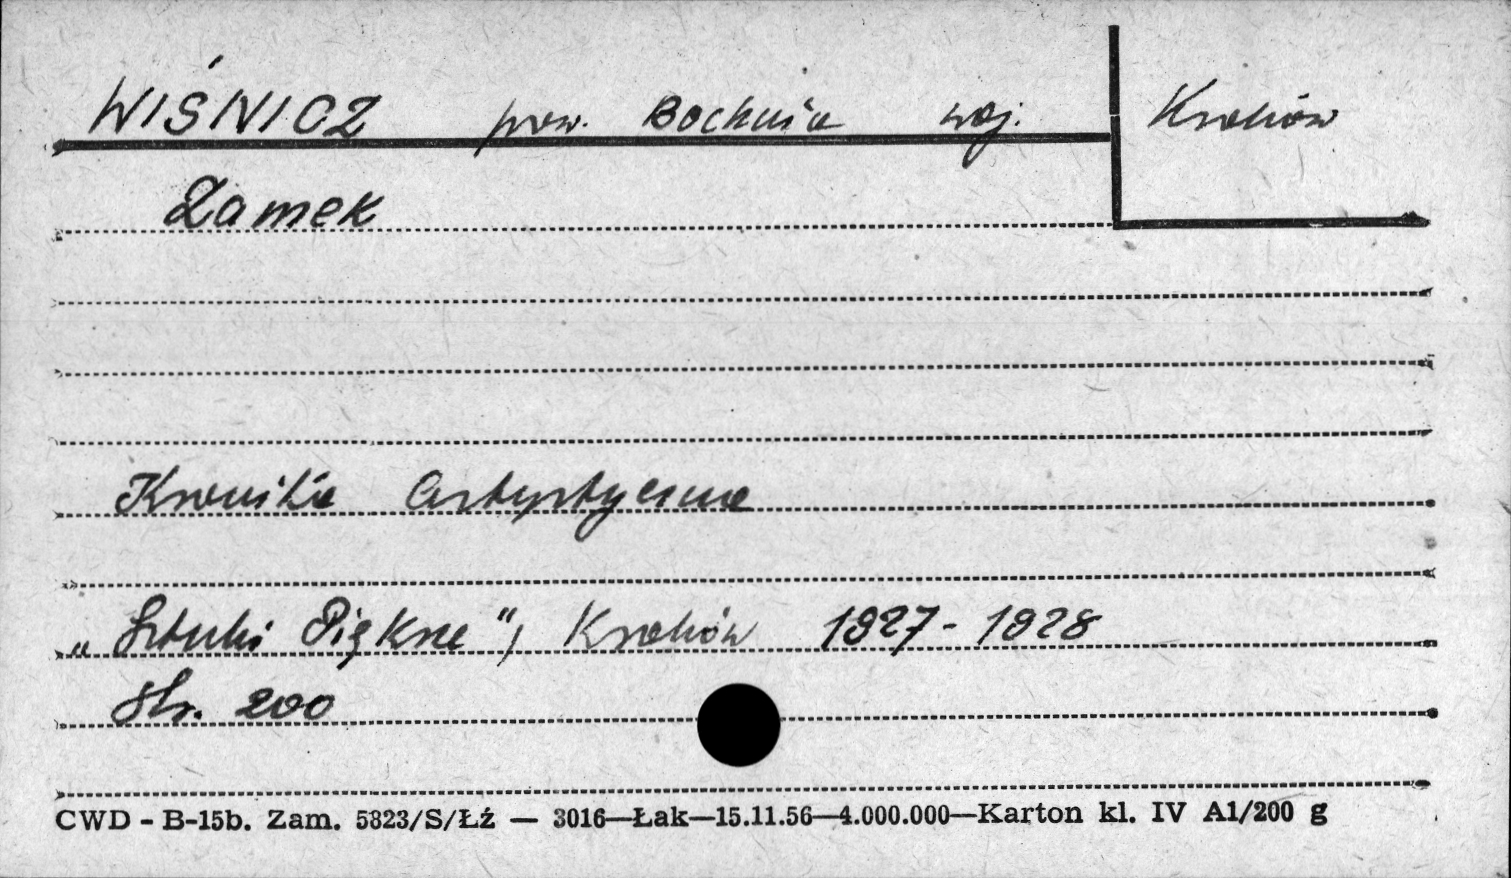 WIŚNICZ pow. Bochnia woj. Kraków
Zamek
Kronika Artystyczna
„Sztuki Piękne", Kraków 1927-1928
Str. 200
CWD - B-15b. Zam. 5823/S/Łź — 3016—Łak—15.11.56—4.000.000—Karton kl. IV A1/200 g